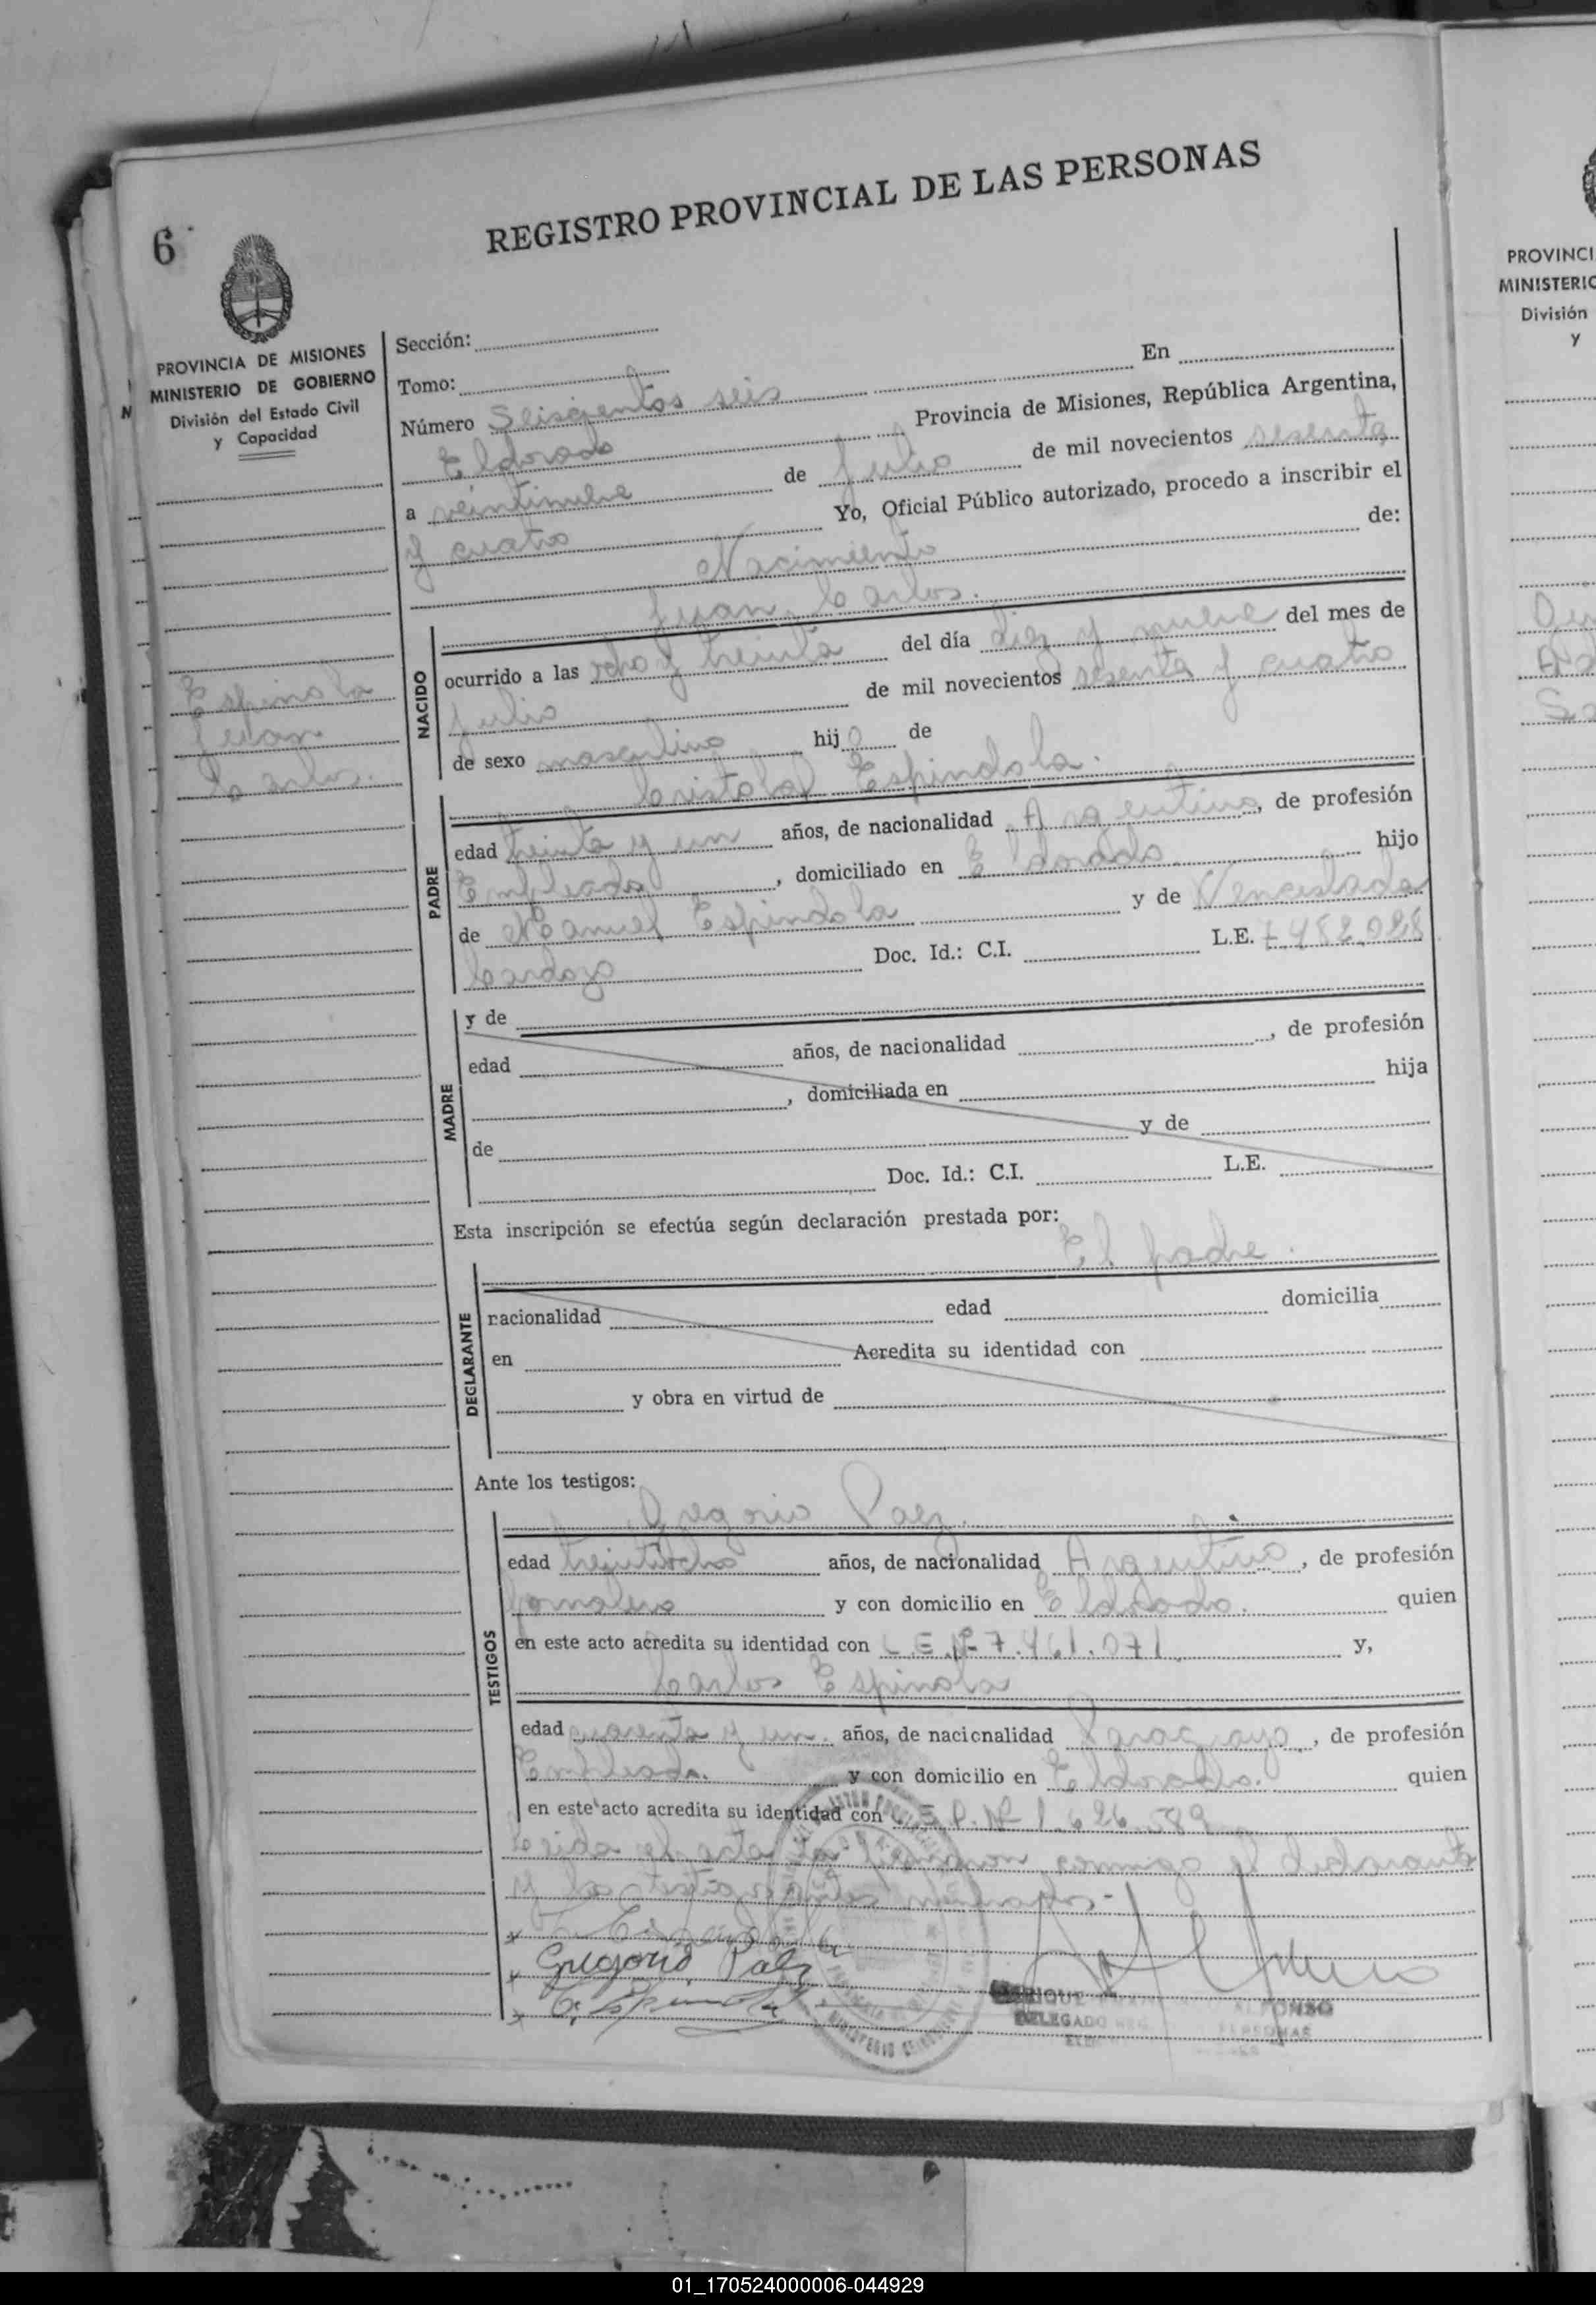 REGISTRO PROVINCIAL DE LAS PERSONAS
6
PROVINCIA DE MISIONES
MINISTERIO DE GOBIERNO
División del Estado Civil
y Capacidad
Espinola
Juan
Carlos.
Sección:
Tomo:
En
Número Seiscientos seis
Eldorado Provincia de Misiones, República Argentina,
a veintinueve de Julio de mil novecientos sesenta
y cuatro Yo, Oficial Público autorizado, procedo a inscribir el
Nacimiento de:
Juan Carlos.
NACIDO
ocurrido a las ocho y treinta del día diez y nueve del mes de
Julio de mil novecientos sesenta y cuatro
de sexo masculino hijo de
Cristobal Espindola.
PADRE
edad treinta y un años, de nacionalidad Argentina, de profesión
Empleado, domiciliado en Eldorado. hijo
de Manuel Espindola y de Venceslada
Cardozo Doc. Id.: C.I. L.E. 7.482.028
MADRE
y de
edad años, de nacionalidad , de profesión
, domiciliada en hija
de y de
Doc. Id.: C.I. L.E.
Esta inscripción se efectúa según declaración prestada por:
El padre.
DECLARANTE
nacionalidad edad domicilia
en Acredita su identidad con
y obra en virtud de
Ante los testigos:
Gregorio Paez.
TESTIGOS
edad treintiocho años, de nacionalidad Argentino, de profesión
Jornalero y con domicilio en Eldorado. quien
en este acto acredita su identidad con L.E.Nº 7.461.071 y,
Carlos Espinola
edad cuarenta y un años, de nacionalidad Paraguayo, de profesión
Empleado. y con domicilio en Eldorado. quien
en este acto acredita su identidad con Nº 1.626.589
Leida el acta la firmaron conmigo el declarante
y los testigos
Gregorio Paez
C. Espinola
ENRIQUE ALFONSO
DELEGADO PERSONAS
PROVINCI
MINISTERIO
División
y
01_170524000006-044929